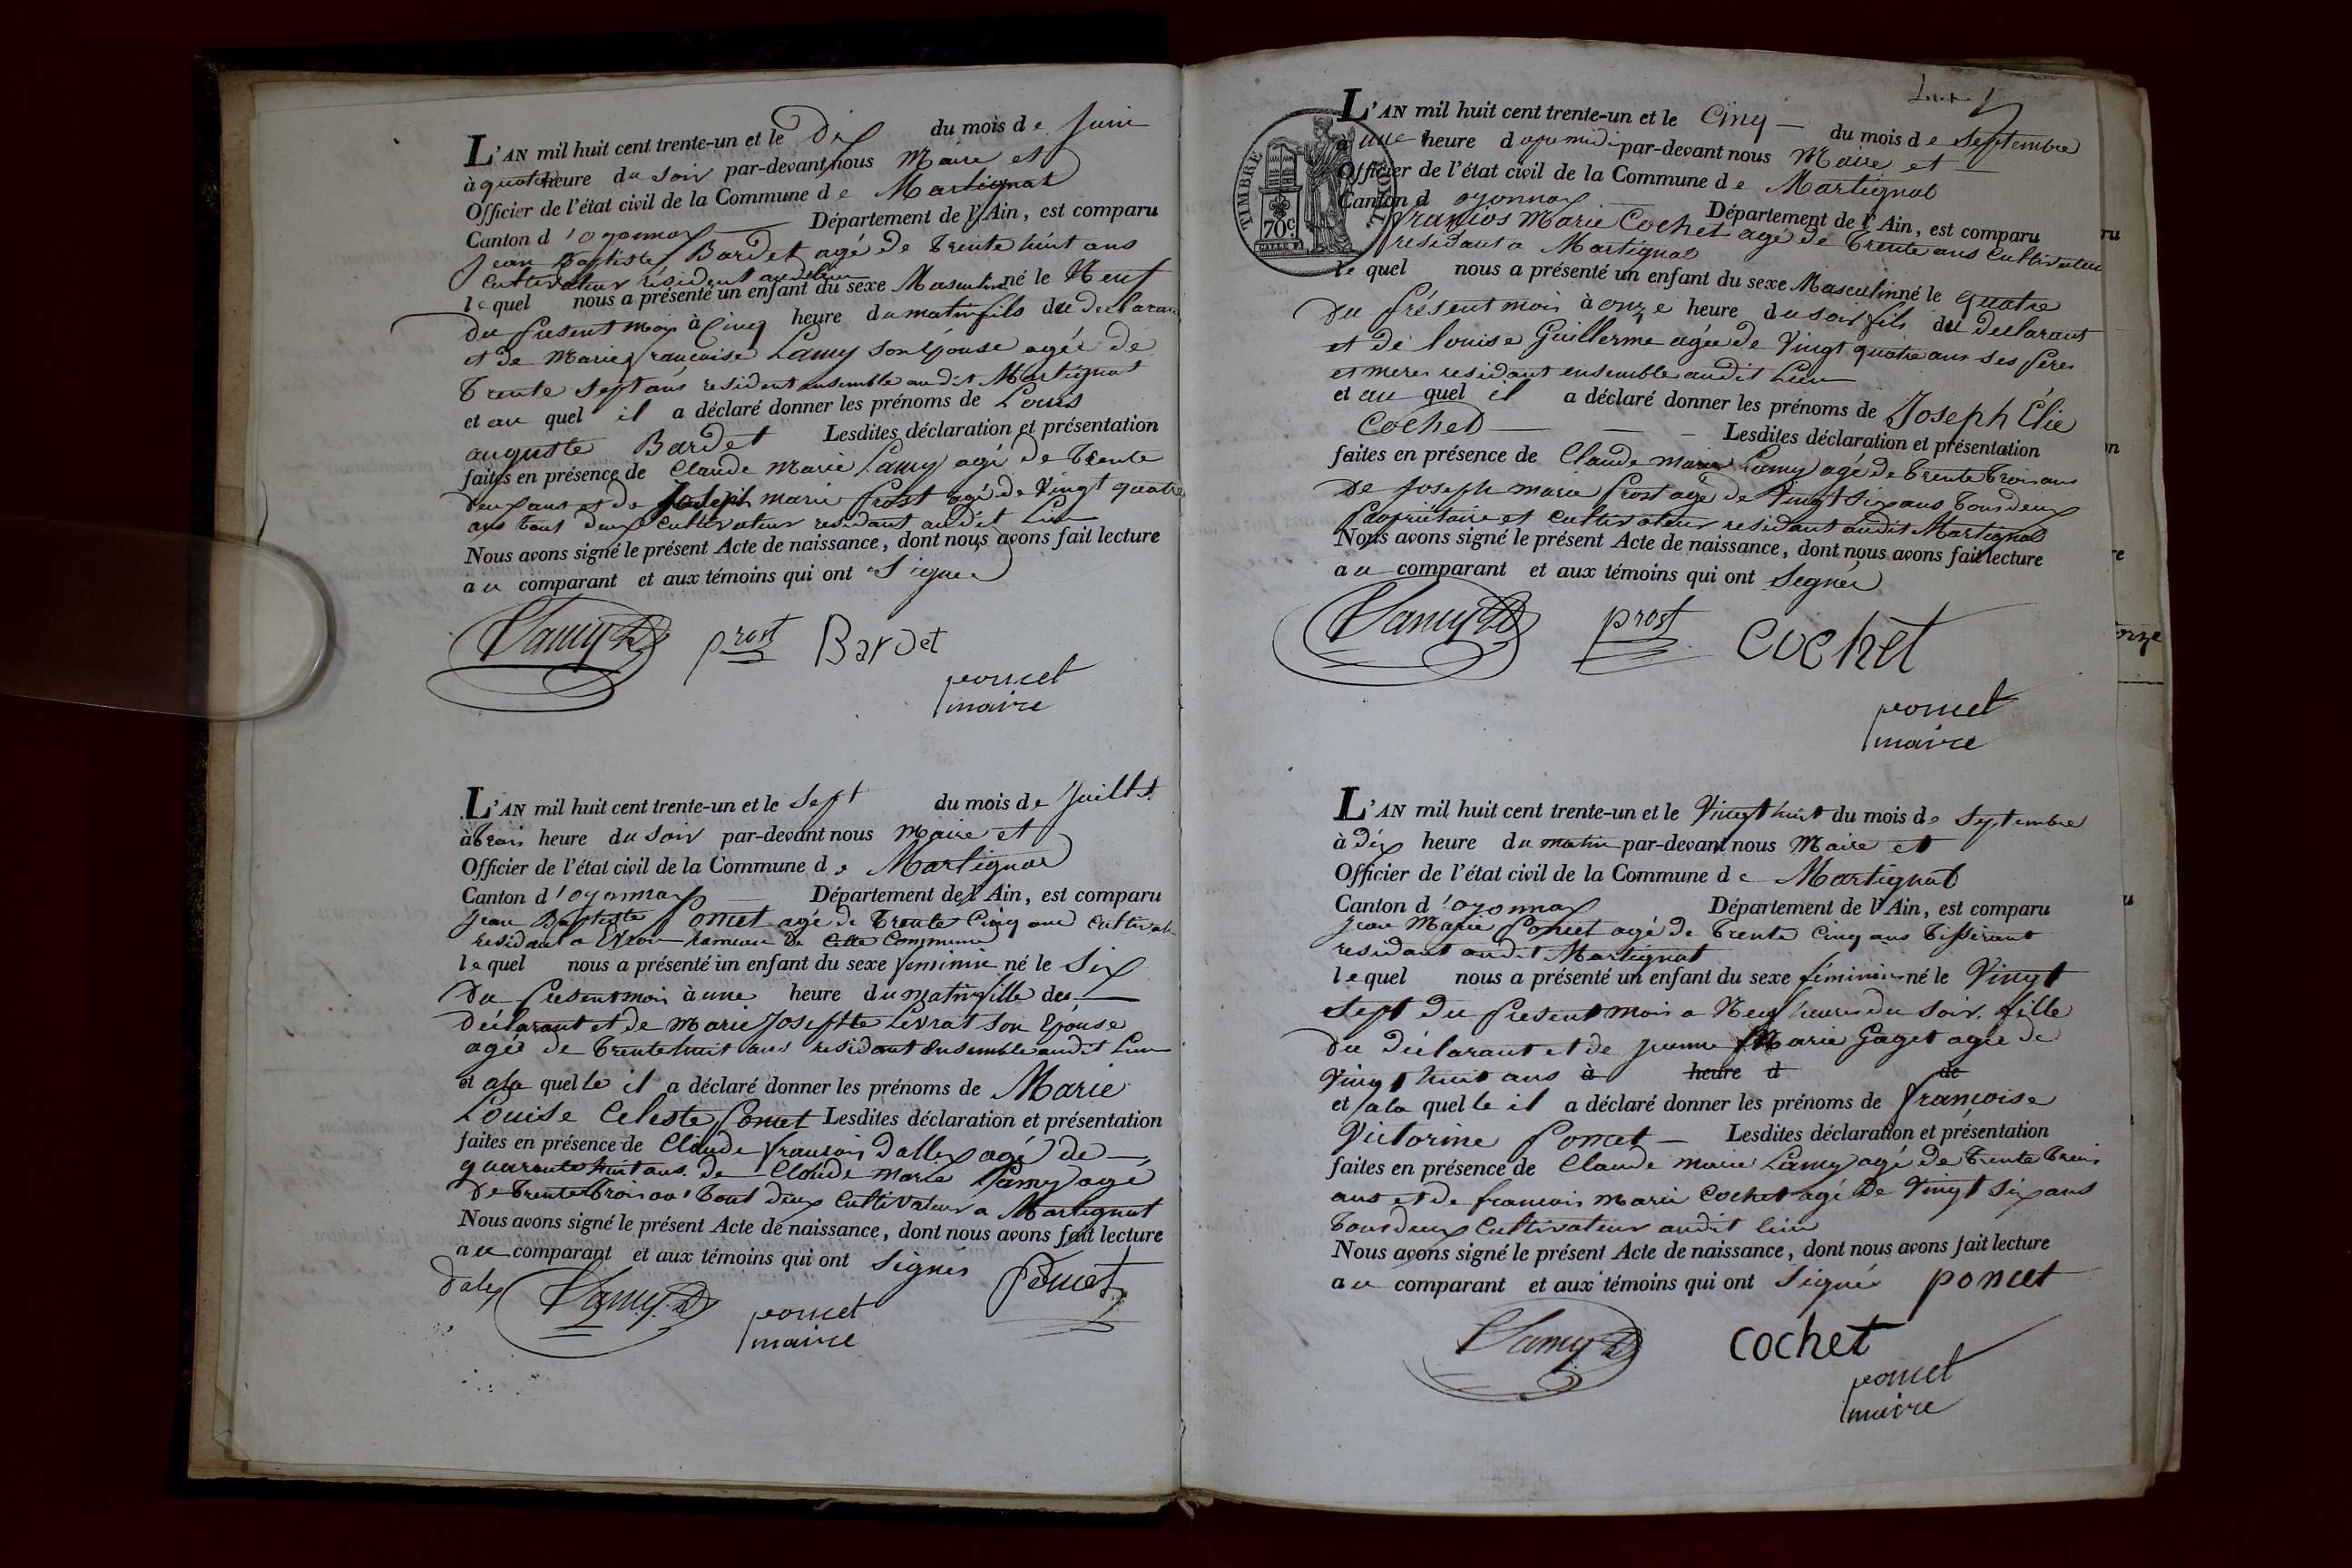 L'AN mil huit cent trente-un et le Dix du mois de Juin
à quatre heure du soir par-devant nous Maire et
Officier de l'état civil de la Commune de Martignat
Canton d'oyonnax Département de l'Ain, est comparu
Jean Baptiste Bardet agé de trente huit ans
Cultivateur résident audit lieu
lequel nous a présenté un enfant du sexe Masculin né le Neuf
du present mois à Cinq heure du matin fils du declarant
et de Marie francoise Lamy son épouse agée de
trente sept ans resident ensemble au dit Martignat
et au quel il a déclaré donner les prénoms de Louis
auguste Bardet Lesdites déclaration et présentation
faites en présence de Claude Marie Lamy agé de trente
deux ans et de Joseph marie Prost agé de Vingt quatre
ans tous deux cultivateur residant audit Lieu
Nous avons signé le présent Acte de naissance, dont nous avons fait lecture
au comparant et aux témoins qui ont Signer
Lamy prost Bardet
poncet
maire
L'AN mil huit cent trente-un et le Sept du mois de Juillet
à trois heure du soir par-devant nous Maire et
Officier de l'état civil de la Commune de Martignat
Canton d'oyonnax Département de l'Ain, est comparu
Jean Baptiste Poncet agé de trente Cinq ans
residant a hameau de Cette Commune
lequel nous a présenté un enfant du sexe feminin né le Six
du present mois à une heure du matin fille du
déclarant et de Marie Josephte Levrat son Epouse
agée de trente huit ans residant ensemble audit Lieu
et a la quelle il a déclaré donner les prénoms de Marie
Louise Celeste Poncet Lesdites déclaration et présentation
faites en présence de Claude francois Dallex agé de
quarante huit ans de Claude Marie Lamy agé
de trente trois ans tout deux Cultivateur a Martignat
Nous avons signé le présent Acte de naissance, dont nous avons fait lecture
au comparant et aux témoins qui ont signés Poncet
Dalex Lamy poncet
maire
L'AN mil huit cent trente-un et le Cinq du mois de Septembre
à une heure d apremidi par-devant nous Maire et
Officier de l'état civil de la Commune de Martignat
Canton d oyonnax Département de l'Ain, est comparu
TIMBRE
70c.
francios Marie Cochet agé de trente ans Cultivateur
residant a Martignat
le quel nous a présenté un enfant du sexe Masculin né le quatre
du présent mois à onze heure du soir fils du declarant
et de louise Guillerme agée de Vingt quatre ans ses peres
et meres residant ensemble audit Lieu
et au quel il a déclaré donner les prénoms de Joseph Élie
Cochet Lesdites déclaration et présentation
faites en présence de Claude marie Lamy agé de trente trois ans
de Joseph marie Prost agé de Vingt Six ans tous deux
Proprietaire et Cultivateur residant audit Martignat
Nous avons signé le présent Acte de naissance, dont nous avons fait lecture
au comparant et aux témoins qui ont Segnés
Lamy prost Cochet
poncet
maire
L'AN mil huit cent trente-un et le Vingt huit du mois de Septembre
à dix heure du matin par-devant nous Maire et
Officier de l'état civil de la Commune de Martignat
Canton d'oyonnax Département de l'Ain, est comparu
Jean Marie Poncet agé de trente Cinq ans tisserant
residant audit Martignat
lequel nous a présenté un enfant du sexe féminin né le Vingt
sept du present mois a Neuf heures du soir fille
du déclarant et de Marie Gaget agée de
Vingt huit ans à heure d de
et a la quelle il a déclaré donner les prénoms de françoise
Victorine Poncet Lesdites déclaration et présentation
faites en présence de Claude marie Lamy agé de trente trois
ans et de francois Marie Cochet agé de Vingt Six ans
tous deux Cultivateur audit lieu
Nous avons signé le présent Acte de naissance, dont nous avons fait lecture
au comparant et aux témoins qui ont Signés poncet
Lamy cochet
poncet
maire